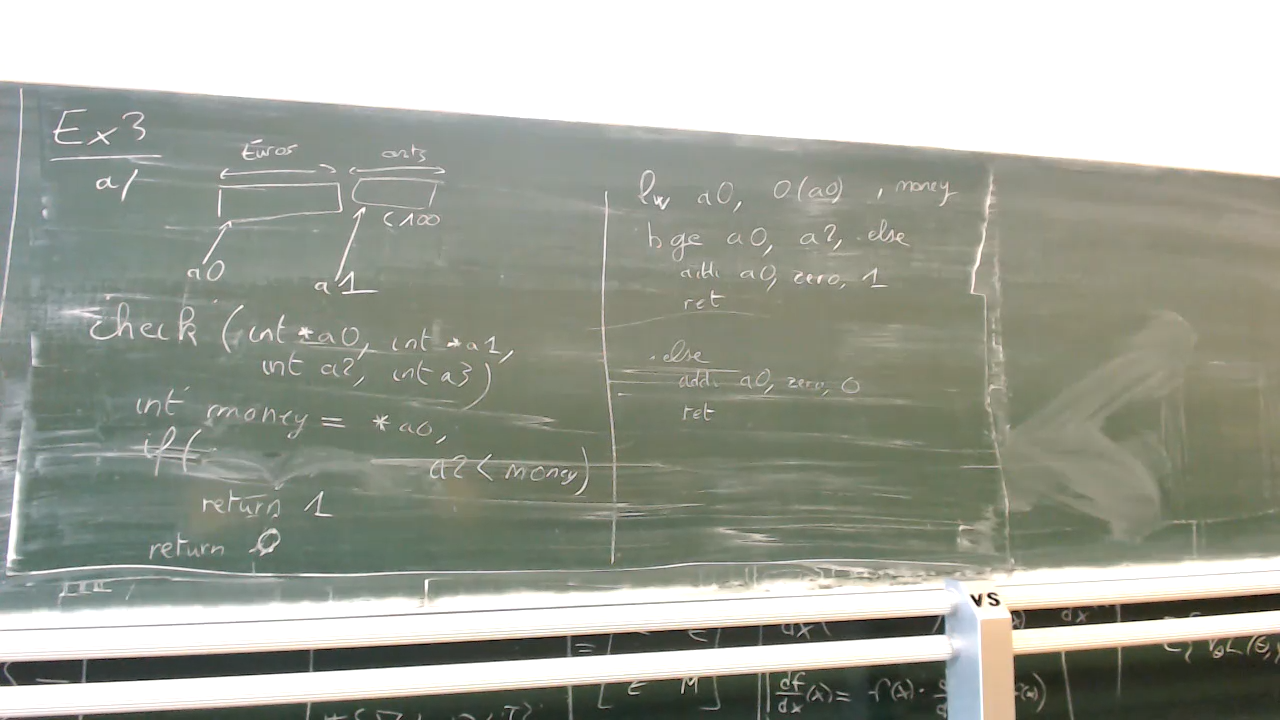 Ex3
a/
Euros
cents
<100
a0
a1
check (int *a0, int *a1,
int a2, int a3)
int money = *a0,
if(
a2 < money)
return 1
return 0
lw a0, 0(a0) , money
bge a0, a2, .else
addi a0, zero, 1
ret
.else
addi a0, zero, 0
ret
VS
dx
dx
df/dx (x) = -f(x) ·